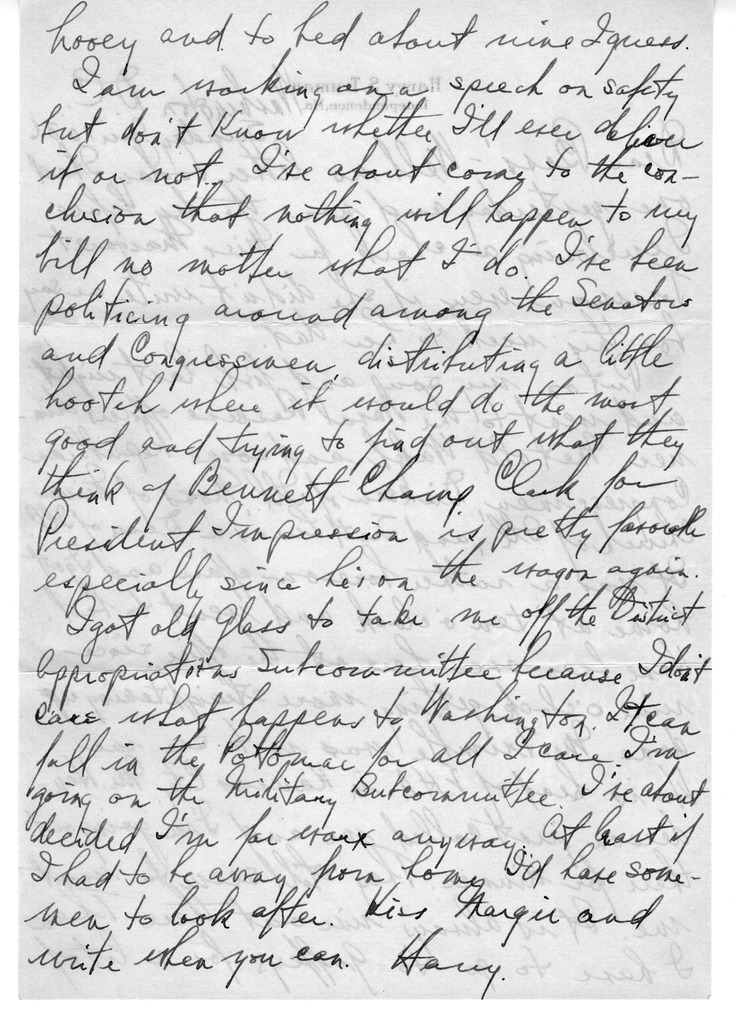 hooey and to bed about nine I guess.
I am working on a speech on safety
but don't know whether I'll ever deliver
it or not. I've about come to the con-
clusion that nothing will happen to my
bill no matter what I do. I've been
politicing around among the Senators
and Congressmen, distributing a little
hootch where it would do the most
good and trying to find out what they
think of Bennett Champ Clark for
President Impression is pretty favorable
especially since he's on the wagon again.
I got old Glass to take me off the District
Appropriations Subcommittee because I don't
care what happens to Washington. It can
fall in the Pottomac for all I care. I'm
going on the Military Subcommittee. I've about
decided I'm for war anyway. At least if
I had to be away from home I'd have some-
men to look after. Kiss Margie and
write when you can. Harry.